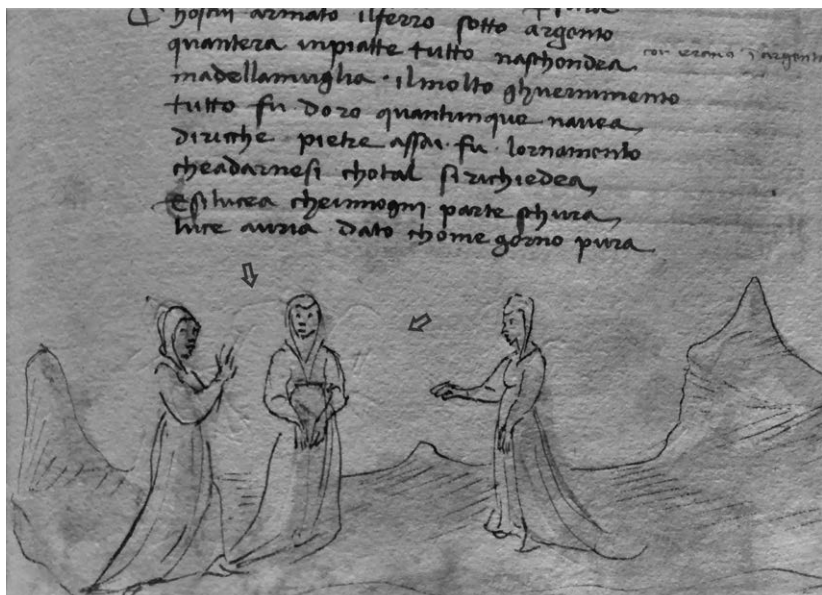 hosin armato ilferro sotto argento
quantera inpiatte tutto naschondea
madellamviglia · ilmolto ghuernimento
tutto fu · doro quantunque navea
diricche pietre assai · fu · lornamento
cheadarnesi chotal sirichiedea
Esilucea cheinnogni parte schura
luce auria dato chome gorno pura